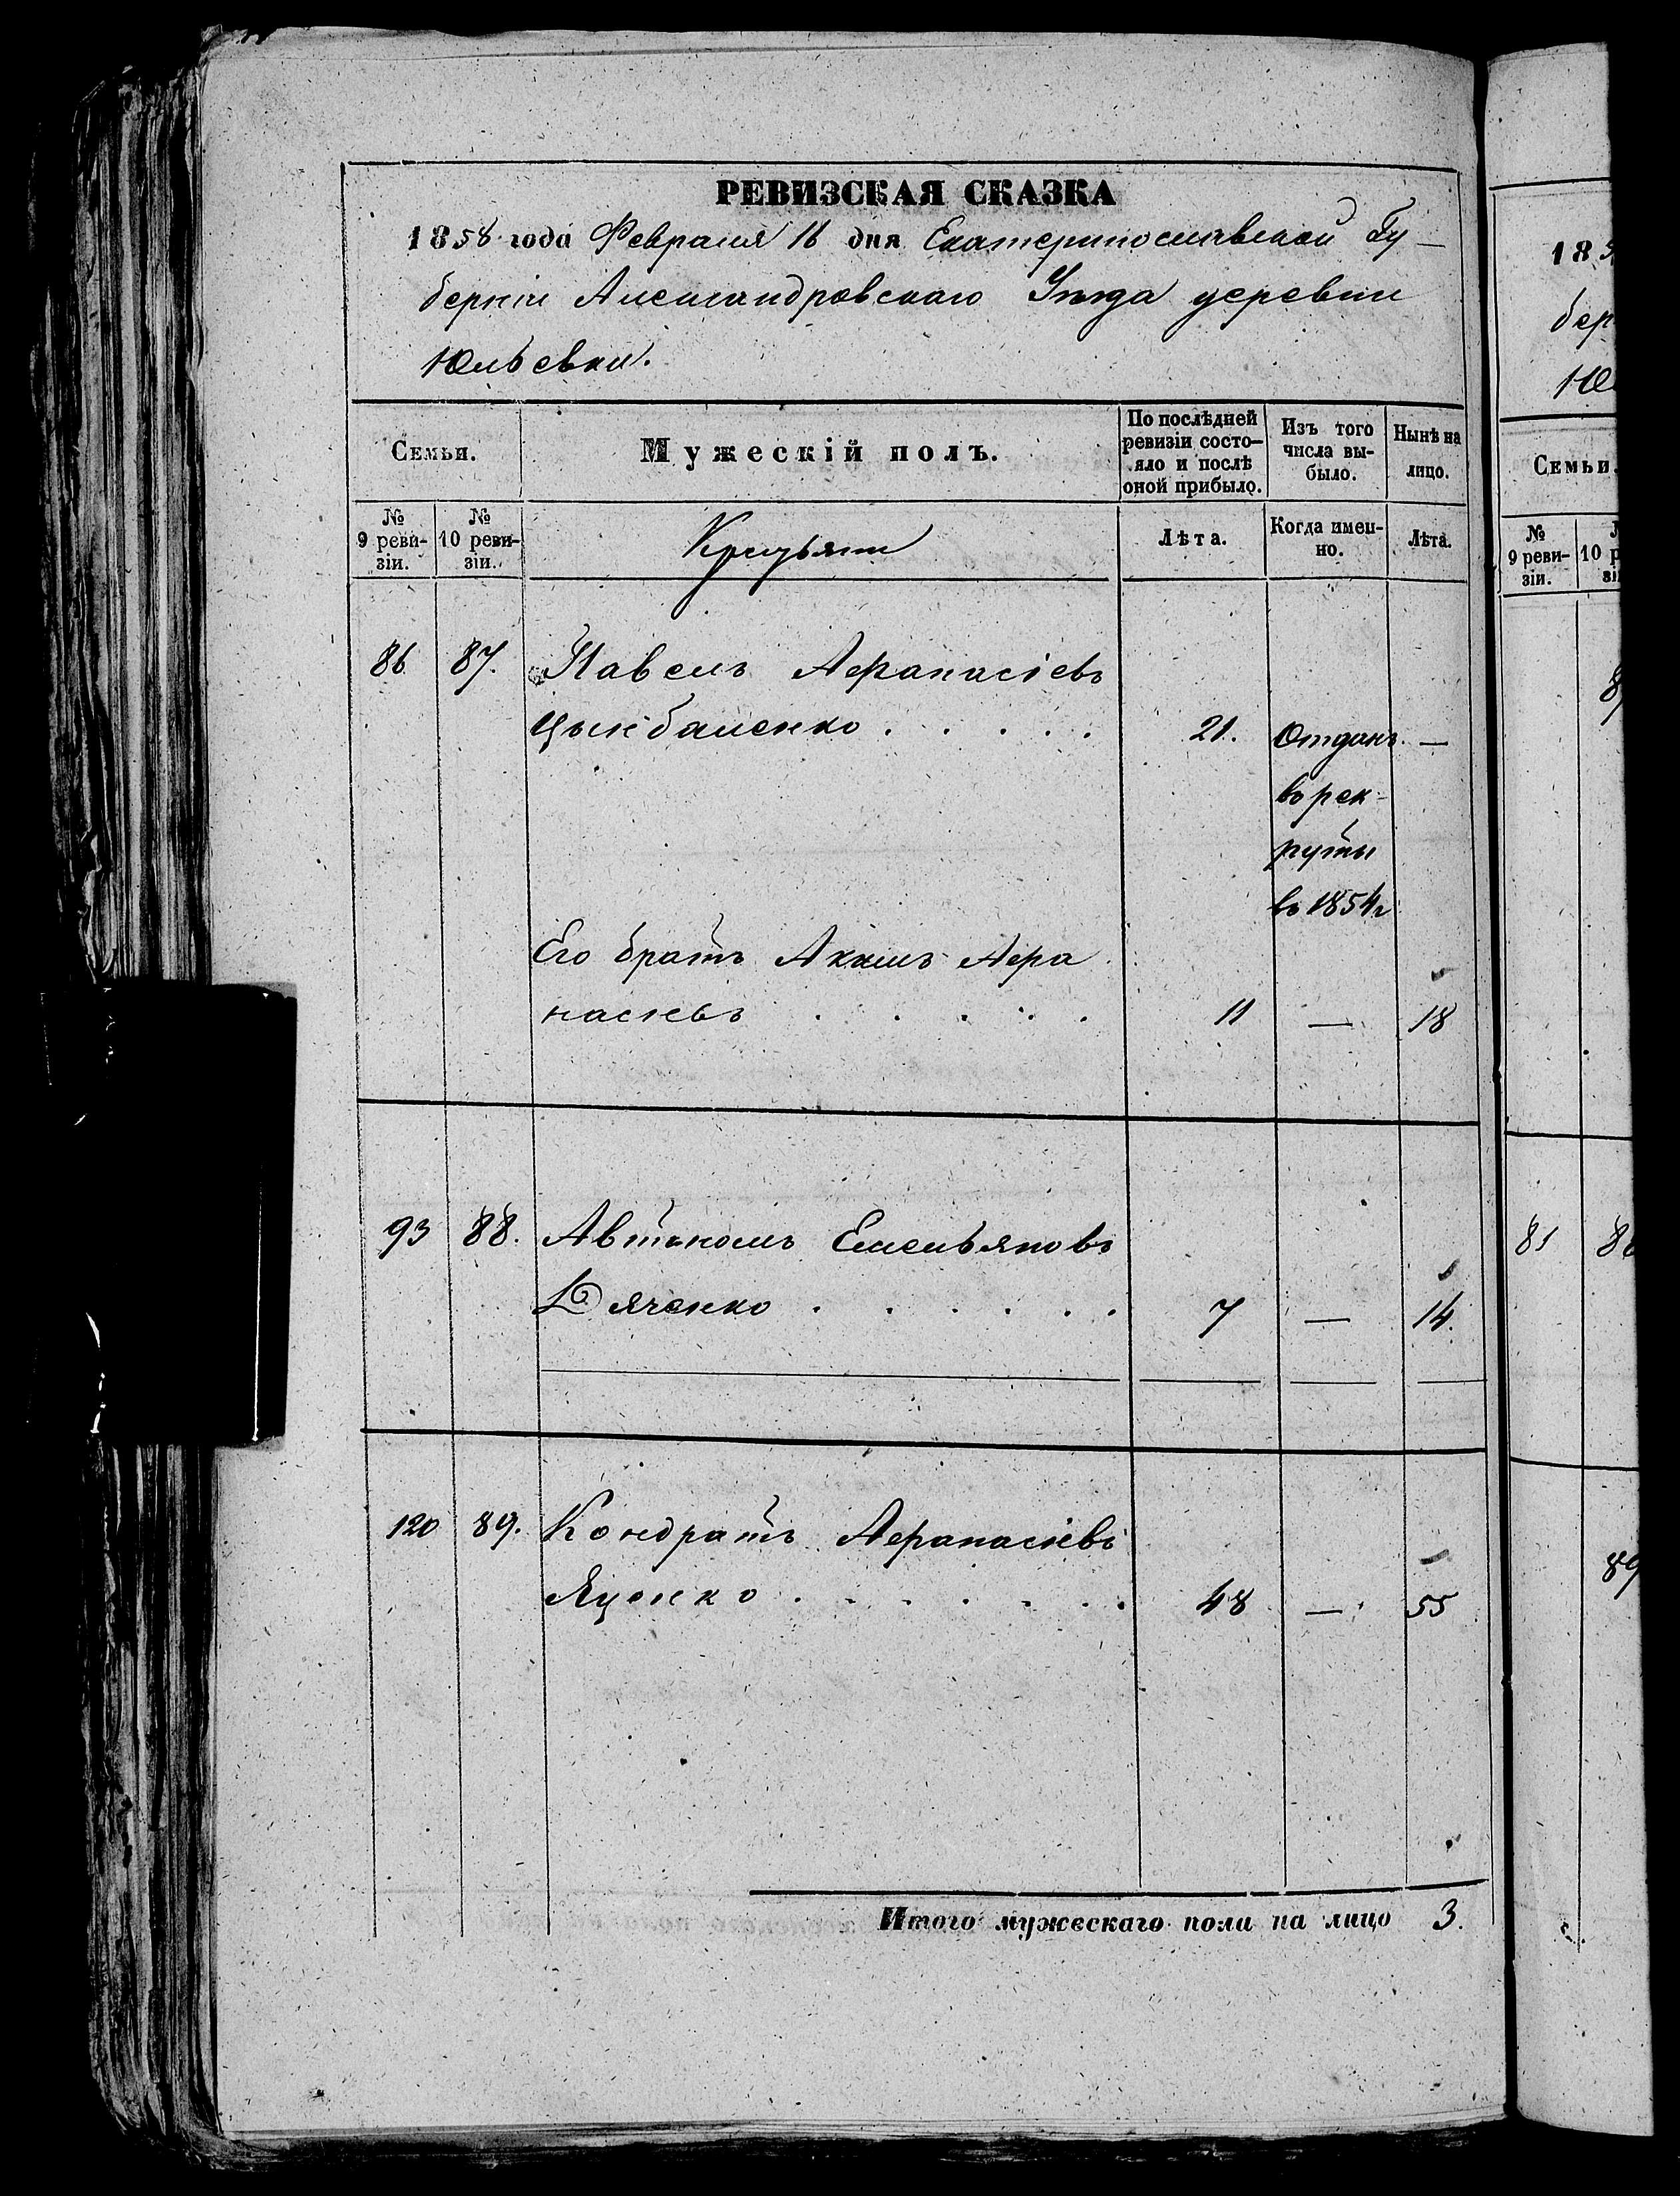 РЕВИЗСКАЯ СКАЗКА
1858 года Февраля 18 дня Екатеринославской Гу-
берніи Александровскаго Уѣзда деревни
Юльевки.
Семьи.
Мужескій полъ.
По послѣдней
ревизіи состо-
яло и послѣ
оной прибыло.
Изъ того
числа вы-
было.
Нынѣ на
лицо.
№
9 реви-
зіи.
№
10 реви-
зіи.
Крестьяне
Лѣта.
Когда имен-
но.
Лѣта.
86 87. Павелъ Афанасіевъ
Цымбаленко . . . . . 21. Отданъ —
въ рек-
руты
въ 1854 г
Его братъ Акимъ Афа
насіевъ . . . . . 11 — 18
93 88. Автономъ Емельяновъ
Дяченко . . . . . . 7 — 14.
120 89. Кондратъ Афанасіевъ
Яценко . . . . . . . 48 — 55
Итого мужескаго пола на лицо 3.
185
бер
Ю
Семьи.
№
9 реви-
зіи.
10 р
зі
81
89